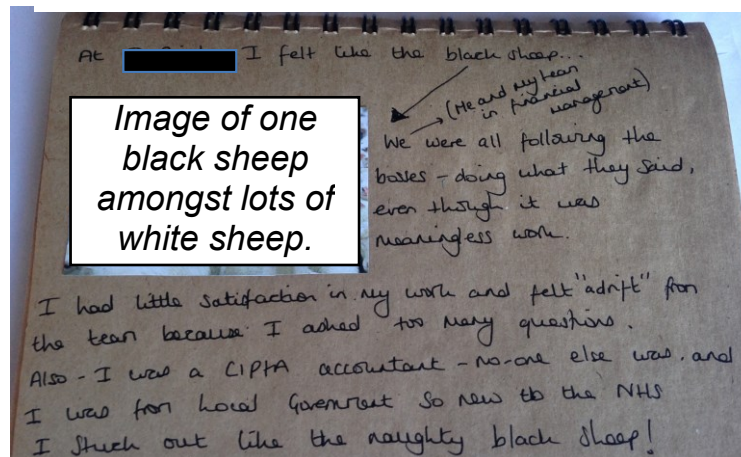 At I felt like the black sheep...
(Me and my team
in financial
management)
Image of one
black sheep
amongst lots of
white sheep.
We were all following the
bosses - doing what they said,
even though it was
meaningless work.
I had little satisfaction in my work and felt "adrift" from
the team because I asked too many questions.
Also - I was a CIPFA accountant - no-one else was. and
I was from Local Government so new to the NHS
I stuck out like the naughty black sheep!